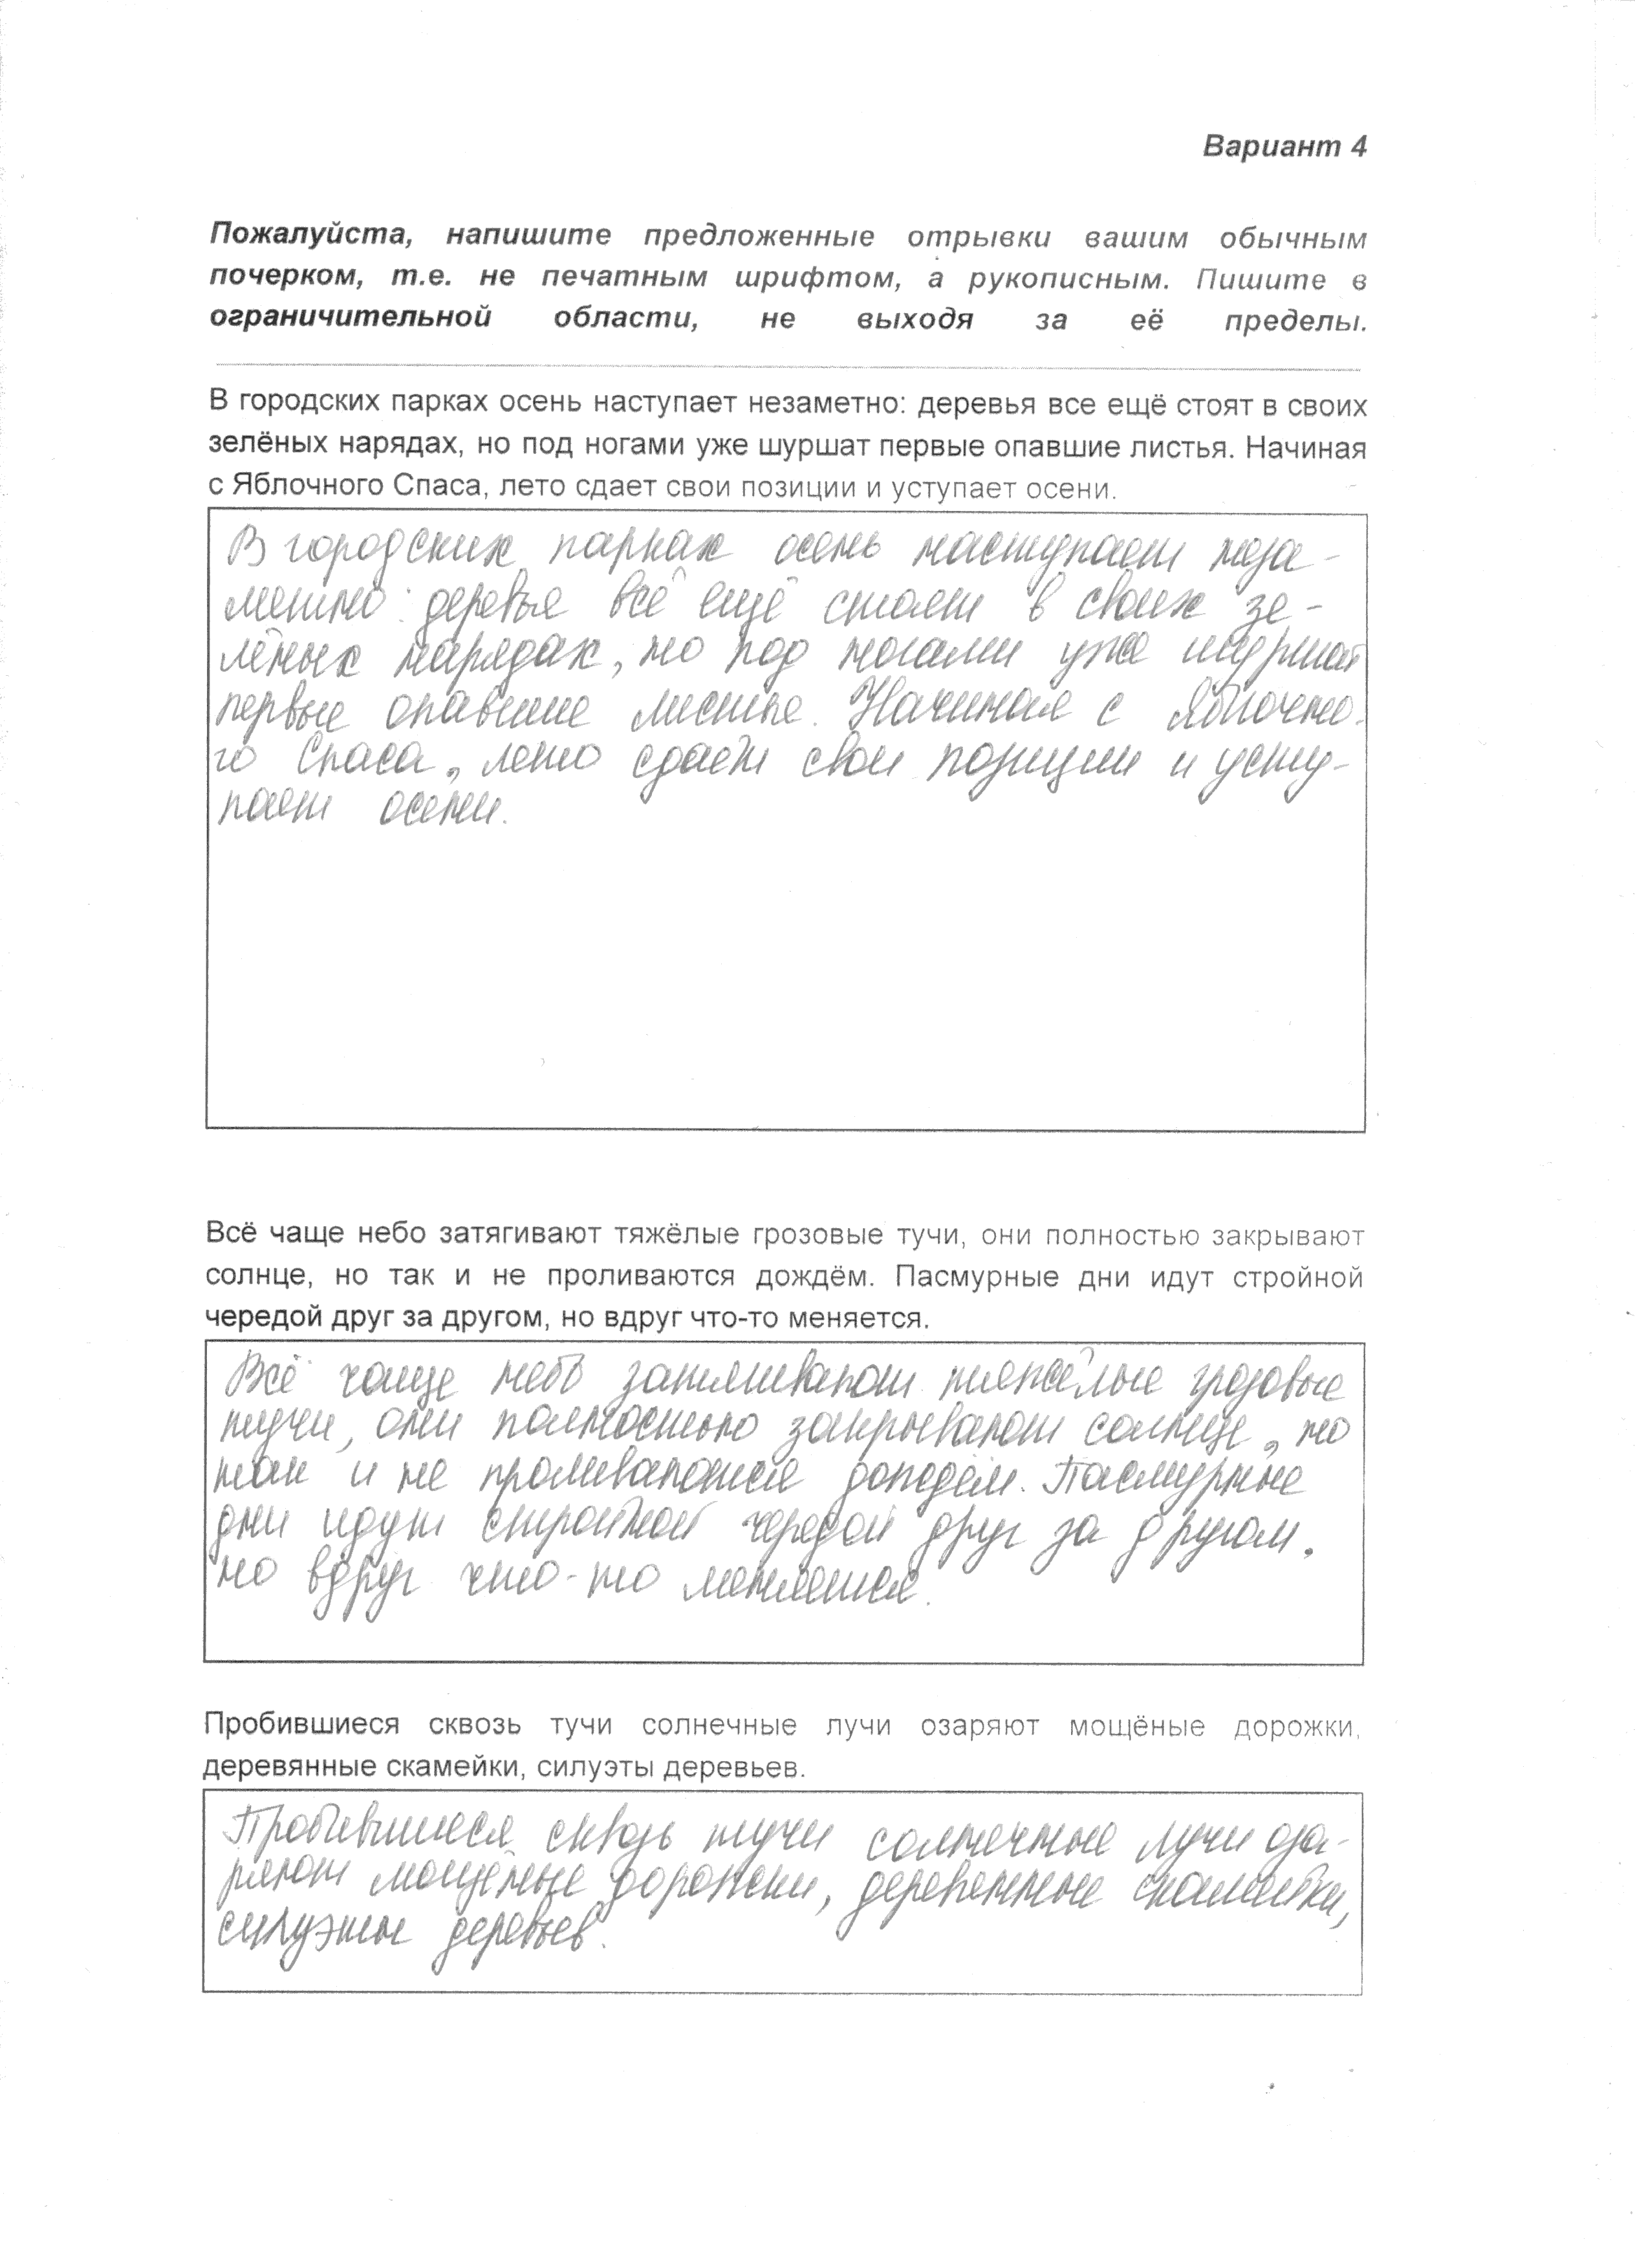 Вариант 4
Пожалуйста, напишите предложенные отрывки вашим обычным
почерком, т.е. не печатным шрифтом, а рукописным. Пишите в
ограничительной области, не выходя за её пределы.
В городских парках осень наступает незаметно: деревья все ещё стоят в своих
зелёных нарядах, но под ногами уже шуршат первые опавшие листья. Начиная
с Яблочного Спаса, лето сдает свои позиции и уступает осени.
В городских парках осень наступает неза-
метно: деревья всё ещё стоят в своих зе-
лёных нарядах, но под ногами уже шуршат
первые опавшие листье. Начиная с Яблочно-
го Спаса, лето сдаёт свои позиции и усту-
пает осени.
Всё чаще небо затягивают тяжёлые грозовые тучи, они полностью закрывают
солнце, но так и не проливаются дождём. Пасмурные дни идут стройной
чередой друг за другом, но вдруг что-то меняется.
Всё чаще небо затягивают тяжёлые грозовые
тучи, они полностью закрывают солнце, но
так и не проливаются дождём. Пасмурные
дни идут стройной чередой друг за другом,
но вдруг что-то меняется.
Пробившиеся сквозь тучи солнечные лучи озаряют мощёные дорожки,
деревянные скамейки, силуэты деревьев.
Пробившиеся сквозь тучи солнечные лучи оза-
ряют мощёные дорожки, деревянные скамейки,
силуэты деревьев.